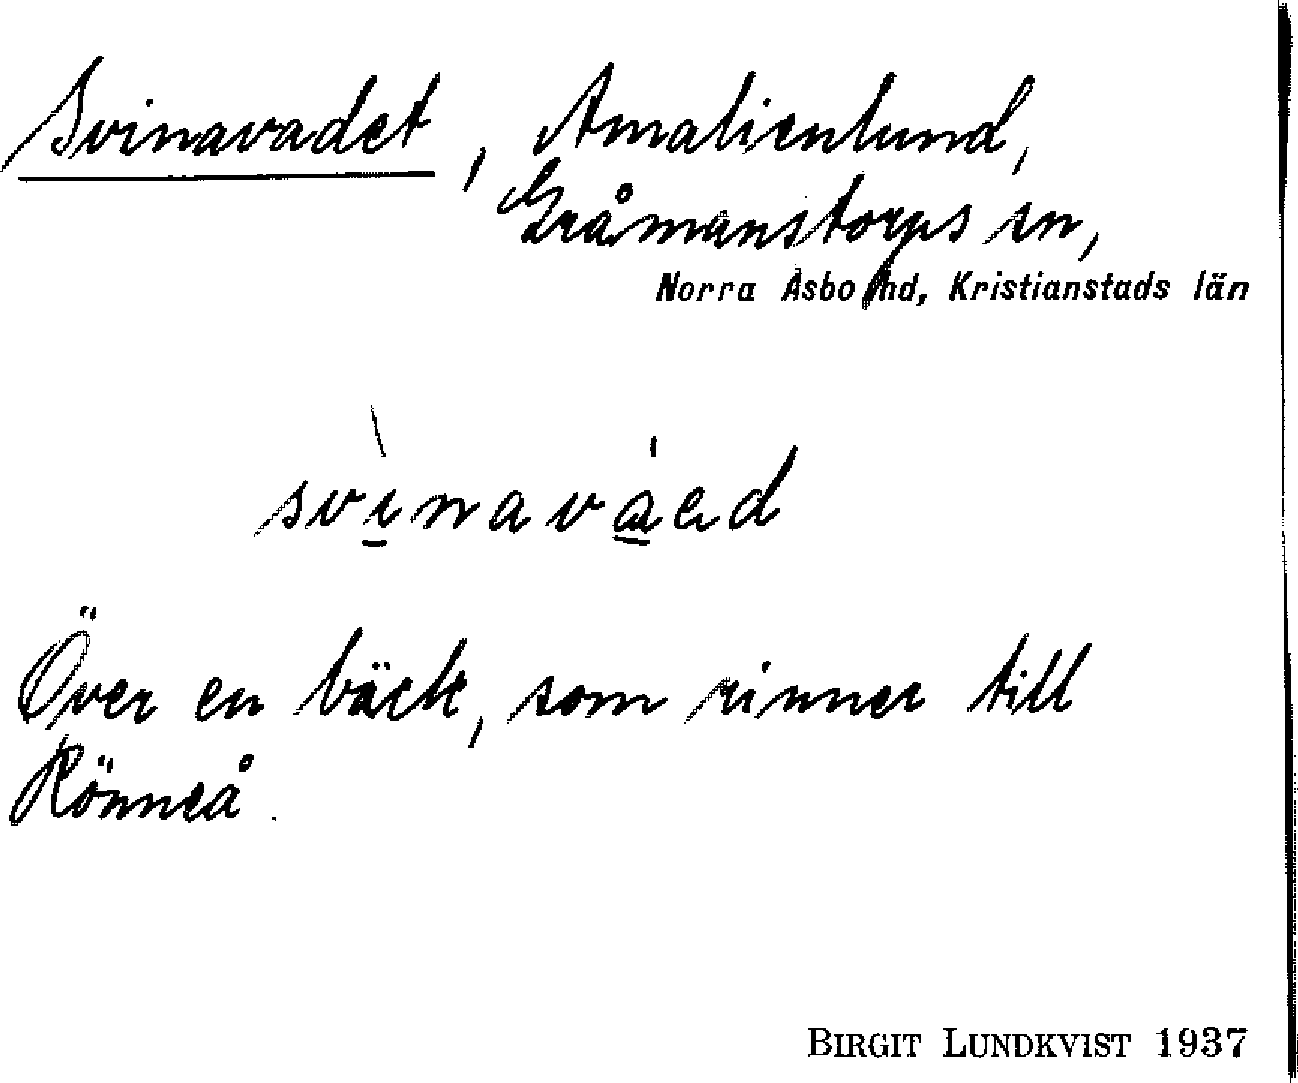 Svinavadet, Amalienlund,
Gråmanstorps sn,
Norra Åsbo hd, Kristianstads län
svìnaváəd
Över en bäck, som rinner till
Rönneå.
BIRGIT LUNDKVIST 1937